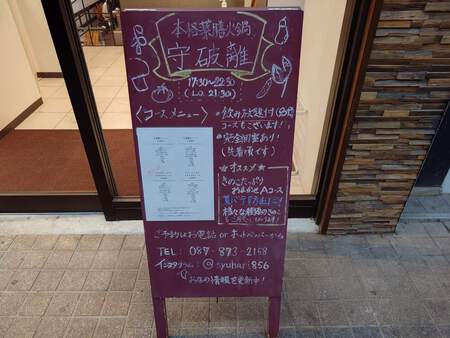 本格薬膳火鍋
守破離
17:30〜22:30
(L.O. 21:30)
〈コースメニュー〉
●飲み放題付
コースもございます！
●完全個室あり！
(先着順です)
☆オススメ☆
きのこたっぷり
おまかせAコース
様々な種類のきのこ
ご予約はお電話 or ホットペッパーから
TEL: 087-873-2158
インスタグラム: @syuhari856
お店の情報を更新中！